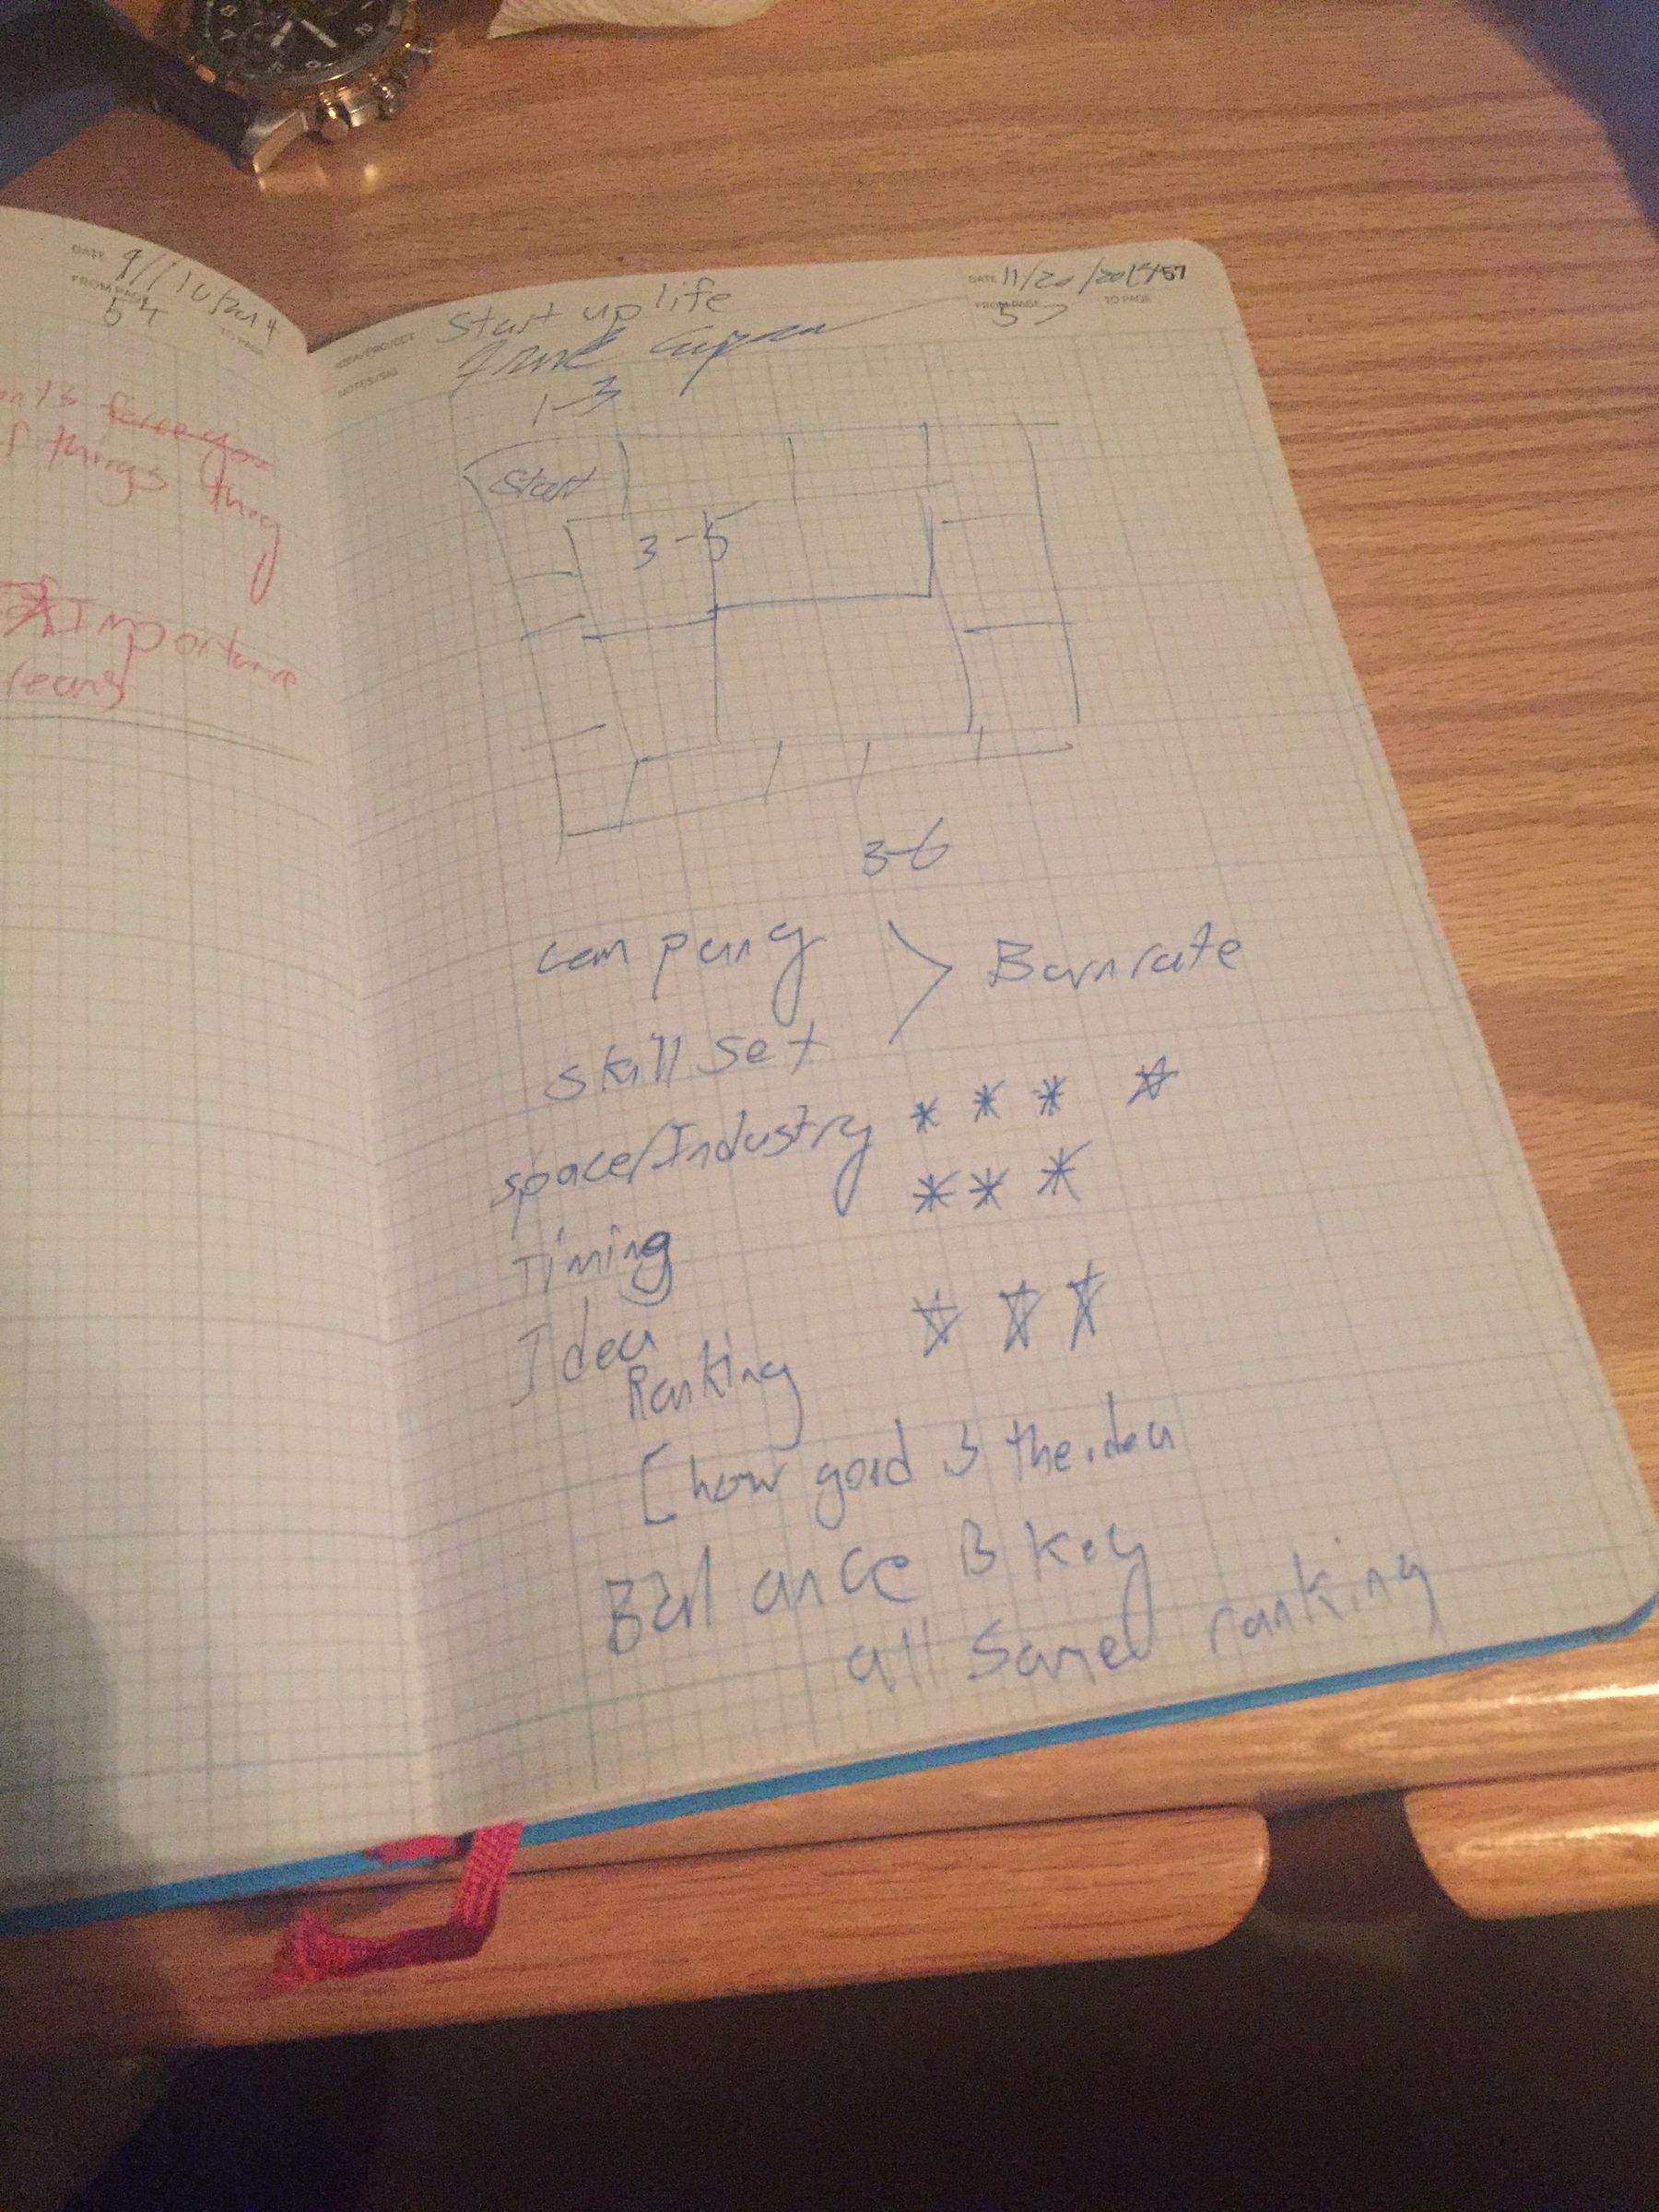 DATE 9/10/2014
FROM PAGE TO PAGE
54
force you
f things they
Importance
IDEA/PROJECT Start up life
NOTES/SIG
DATE 11/20/2014 57
FROM PAGE TO PAGE
57
1-3
Start
3-5
3-6
company > Burnrate
skill set
space/Industry * * * ☆
Timing * * *
Idea ☆ ☆ ☆
Ranking
[how good is the idea
Balance is key
all same ranking